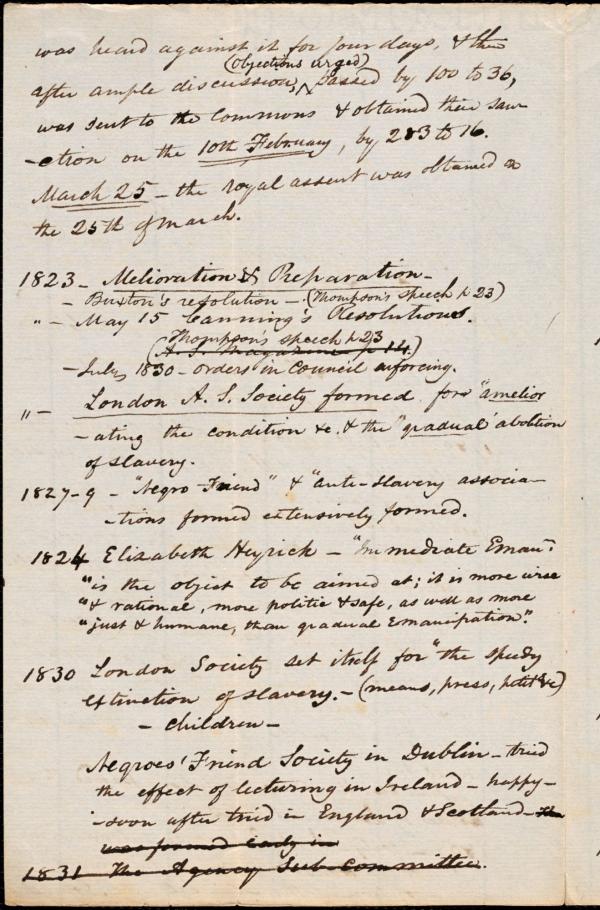 was heard against it for four days, & then
(objections urged)
after ample discussion, passed by 100 to 36,
was sent to the Commons & obtained their san-
-ction on the 10th February, by 283 to 16.
March 25 - the royal assent was obtained on
the 25th of March.
1823 - Melioration & Preparation -
- Buxton's resolution - (Thompson's speech p 23)
" - May 15 Canning's Resolutions.
Thompson's speech p 23
(A. S. Magazine p 14.)
- July 1830 - orders in Council enforcing.
" - London A. S. Society formed for "amelior
-ating the condition &c. & the "gradual" abolition
of slavery.
1827-9 - "Negro Friend" & "anti-slavery associa-
-tions formed extensively formed.
1824 Elizabeth Heyrick - "Immediate Eman:
"is the object to be aimed at; it is more wise
"& rational, more politic & safe, as well as more
"just & humane, than gradual Emancipation".
1830 London Society set itself for "the speedy
extinction of slavery. - (means, press, petit &c)
- Children -
Negroes' Friend Society in Dublin - tried
the effect of lecturing in Ireland - happy -
- soon after tried in England & Scotland - The
was formed early in
1831 The Agency Sub-Committee.